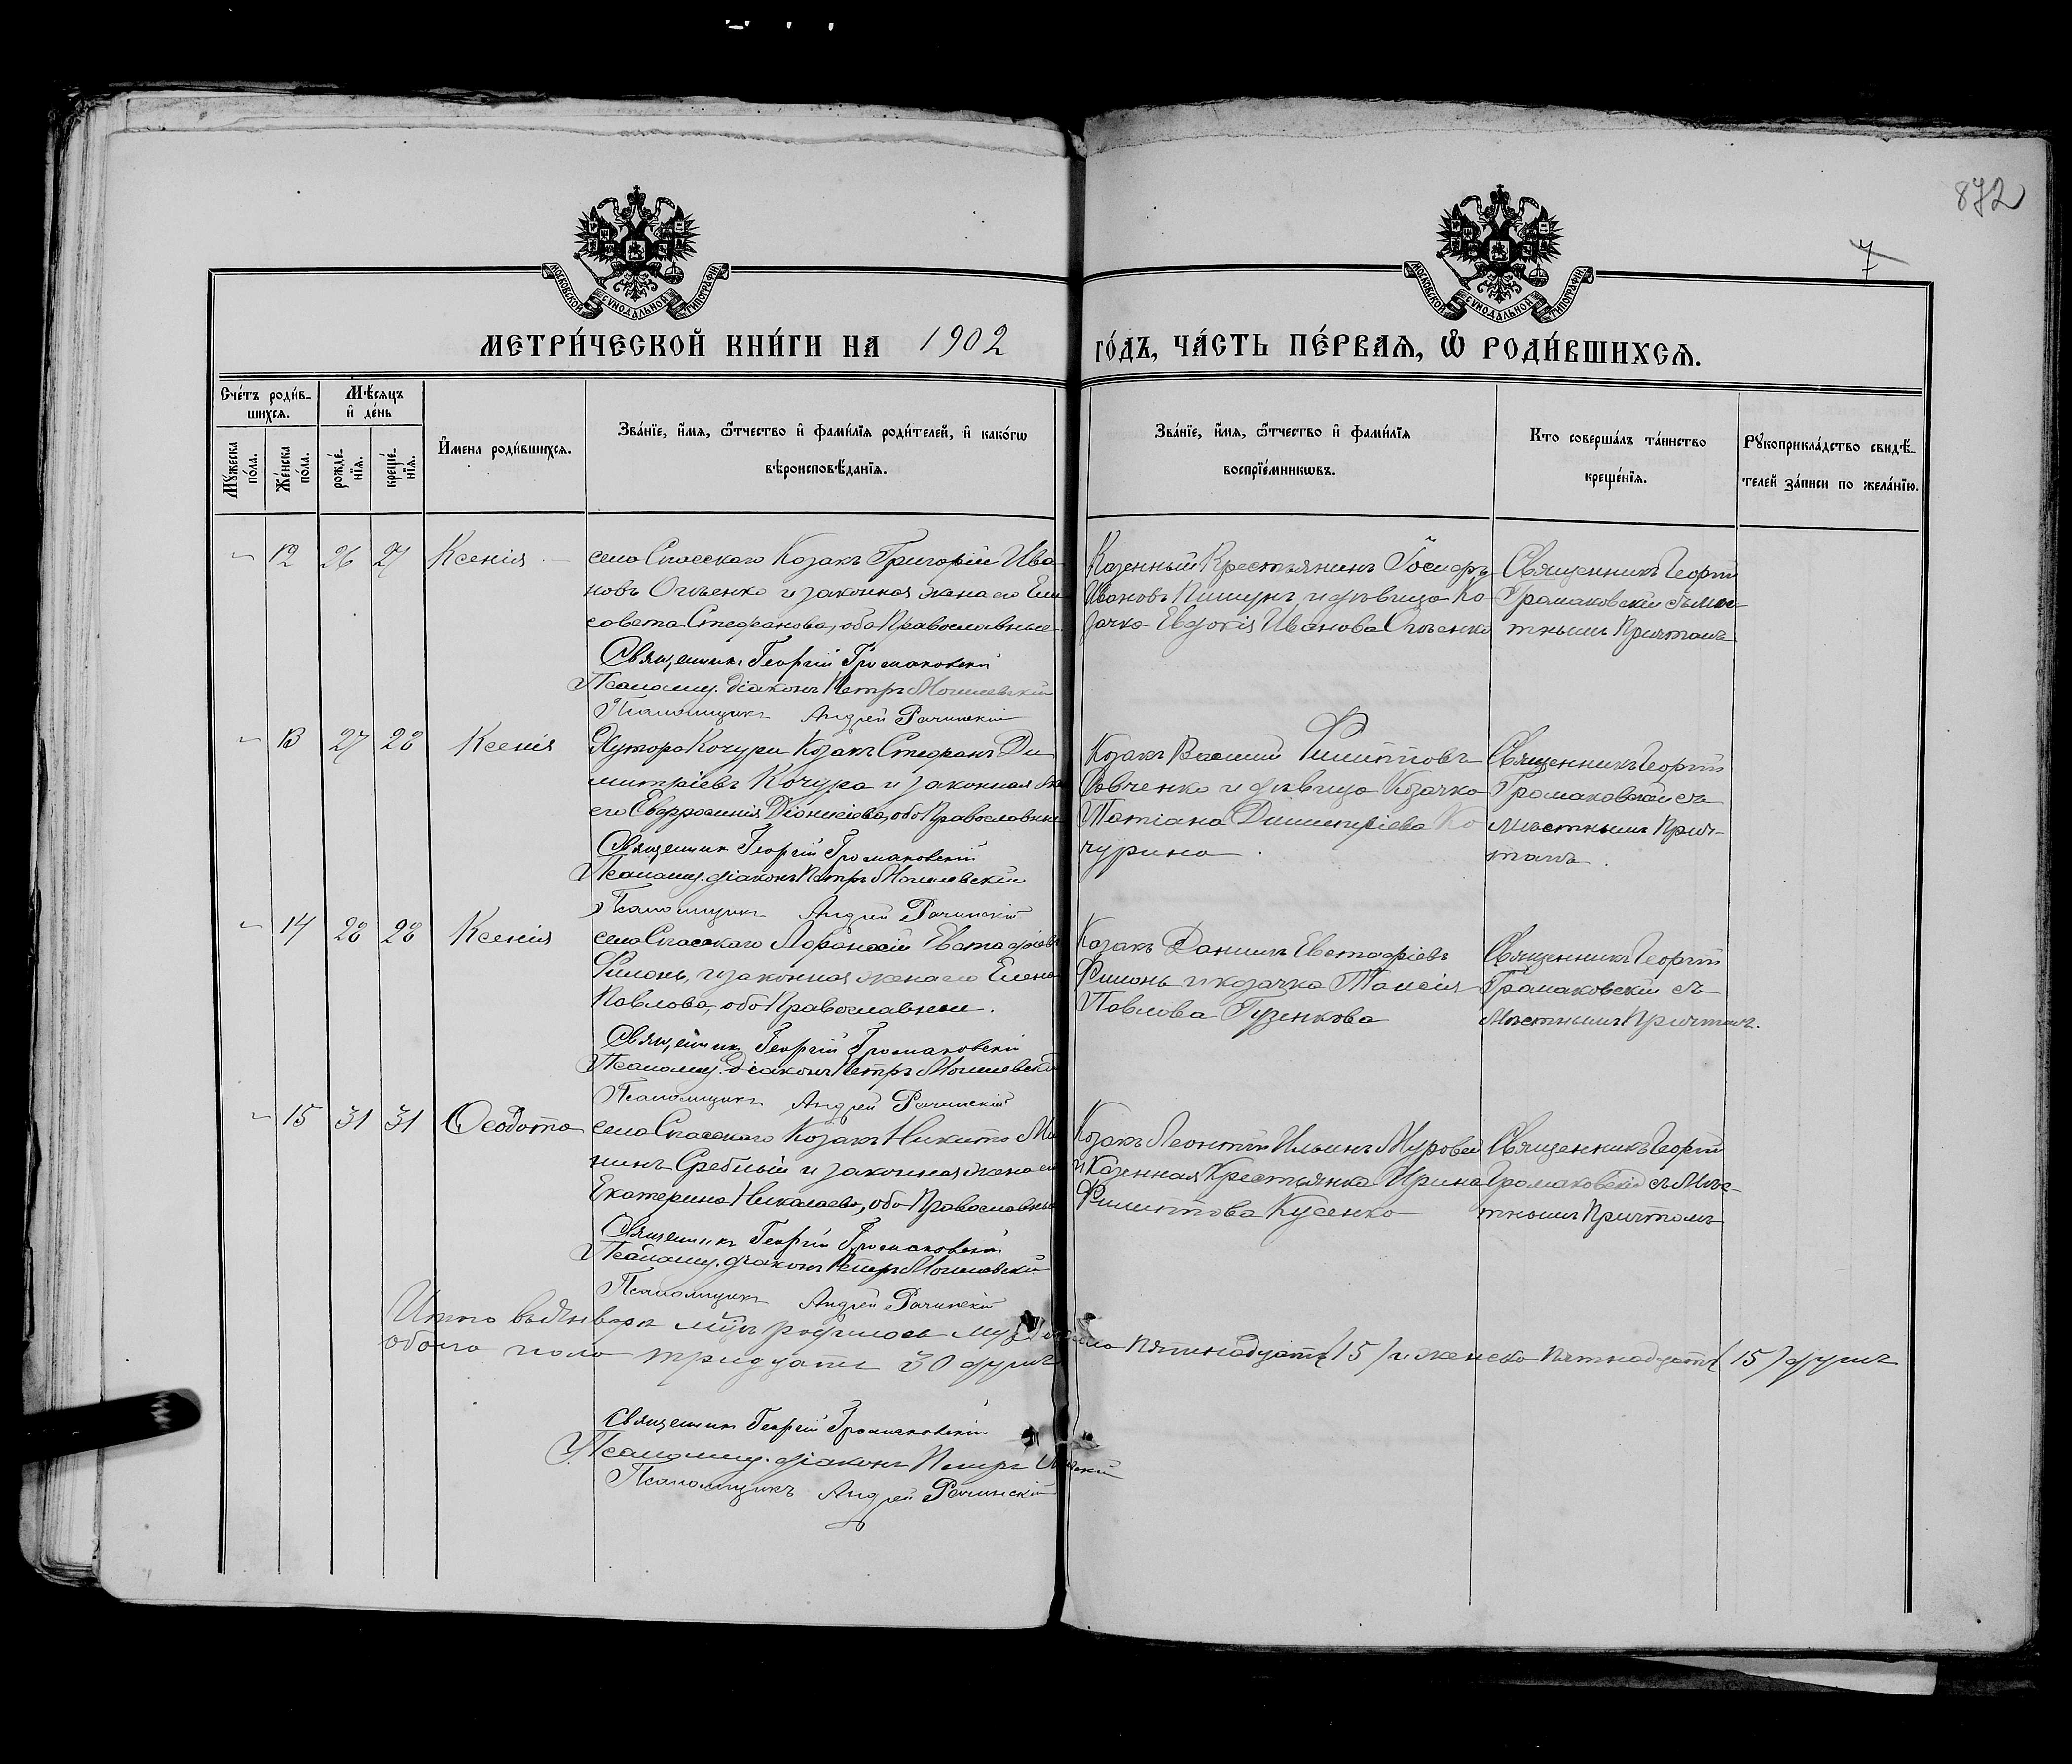 872
7
МОСКОВСКОЙ СѴНОДАЛЬНОЙ ТИПОГРАФІИ
МОСКОВСКОЙ СѴНОДАЛЬНОЙ ТИПОГРАФІИ
МЕТРИ́ЧЕСКОЙ КНИ́ГИ НА 1902 ГО́ДЪ, ЧА́СТЬ ПЕ́РВАѦ, Ѡ҆ РОДИ́ВШИХСѦ.
Сче́тъ роди́в-
шихсѧ.
Мꙋ́жеска по́ла.
Же́нска по́ла.
Мѣ́сѧцъ и҆ де́нь
рожде́-нїѧ.
креще́-нїѧ.
И҆мена роди́вшихсѧ.
Зва́нїе, и҆́мѧ, ѻ҆́тчество и҆ фами́лїѧ роди́телей, и҆ како́гѡ
вѣроисповѣ́данїѧ.
Зва́нїе, и҆́мѧ, ѻ҆́тчество и҆ фами́лїѧ
воспрїе́мникѡвъ.
Кто соверша́лъ та́инство
креще́нїѧ.
Рꙋкоприкла́дство свидѣ́-
телей за́писи по жела́нїю.
12 26 27 Ксенія
села Спасскаго Козакъ Григорій Ива
новъ Огіенко и законная жена его Ели
савета Стефанова, оба Православные
Священникъ Георгій Громаковскій
Псаломщ. діаконъ Петръ Могилевскій
Псаломщикъ Андрей Рачинскій
Казенный Крестьянинъ Іосифъ
Ивановъ и дѣвица Ко
зачка Евдокія Иванова Огіенко
Священникъ Георгій
Громаковскій съ мѣс-
тнымъ Причтомъ
13 27 28 Ксенія
Хутора Кочуры Козакъ Стефанъ Ди
митріевъ Кочура и законная же
его Евфросинія Діонисіева, оба Православные
Священник Георгій Громаковскій
Псаломщ. діаконъ Петръ Могилевскій
Псаломщикъ Андрей Рачинскій
Козакъ Василій Филипповъ
Вовченко и дѣвица Козачка
Татіана Димитріева Ко
чурина.
Священникъ Георгій
Громаковскій съ
мѣстнымъ Прич-
томъ.
14 28 28 Ксенія
села Спасскаго Афанасій Евстафіевъ
Филонъ, и законная жена его Елена
Павлова, оба Православные.
Священникъ Георгій Громаковскій
Псаломщ. діаконъ Петръ Могилевскій
Псаломщикъ Андрей Рачинскій
Козакъ Даниилъ Евстафіевъ
Филонъ и козачка Таисія
Павлова Гузенкова
Священникъ Георгій
Громаковскій съ
Мѣстнымъ Причтомъ.
15 31 31 Ѳеодота
села Спасскаго Козакъ Никита Ми
нинъ Сребный и законная жена его
Екатерина Николаева, оба Православные
Священникъ Георгій Громаковскій
Псаломщ. діаконъ Петръ Могилевскій
Псаломщикъ Андрей Рачинскій
Козакъ Леонтій Ильинъ Муровей
и Казенная Крестьянка Ирина
Филиппова Кусенко
Священникъ Георгій
Громаковскій съ Мѣс-
тнымъ Причтомъ
Итого въ Январѣ м-цѣ родилось муж пола Пятнадцать (15) и женска Пятнадцать (15) душъ
обоего пола тридцать 30 душъ
Священникъ Георгій Громаковскій
Псаломщ. діаконъ Петръ
Псаломщикъ Андрей Рачинскій